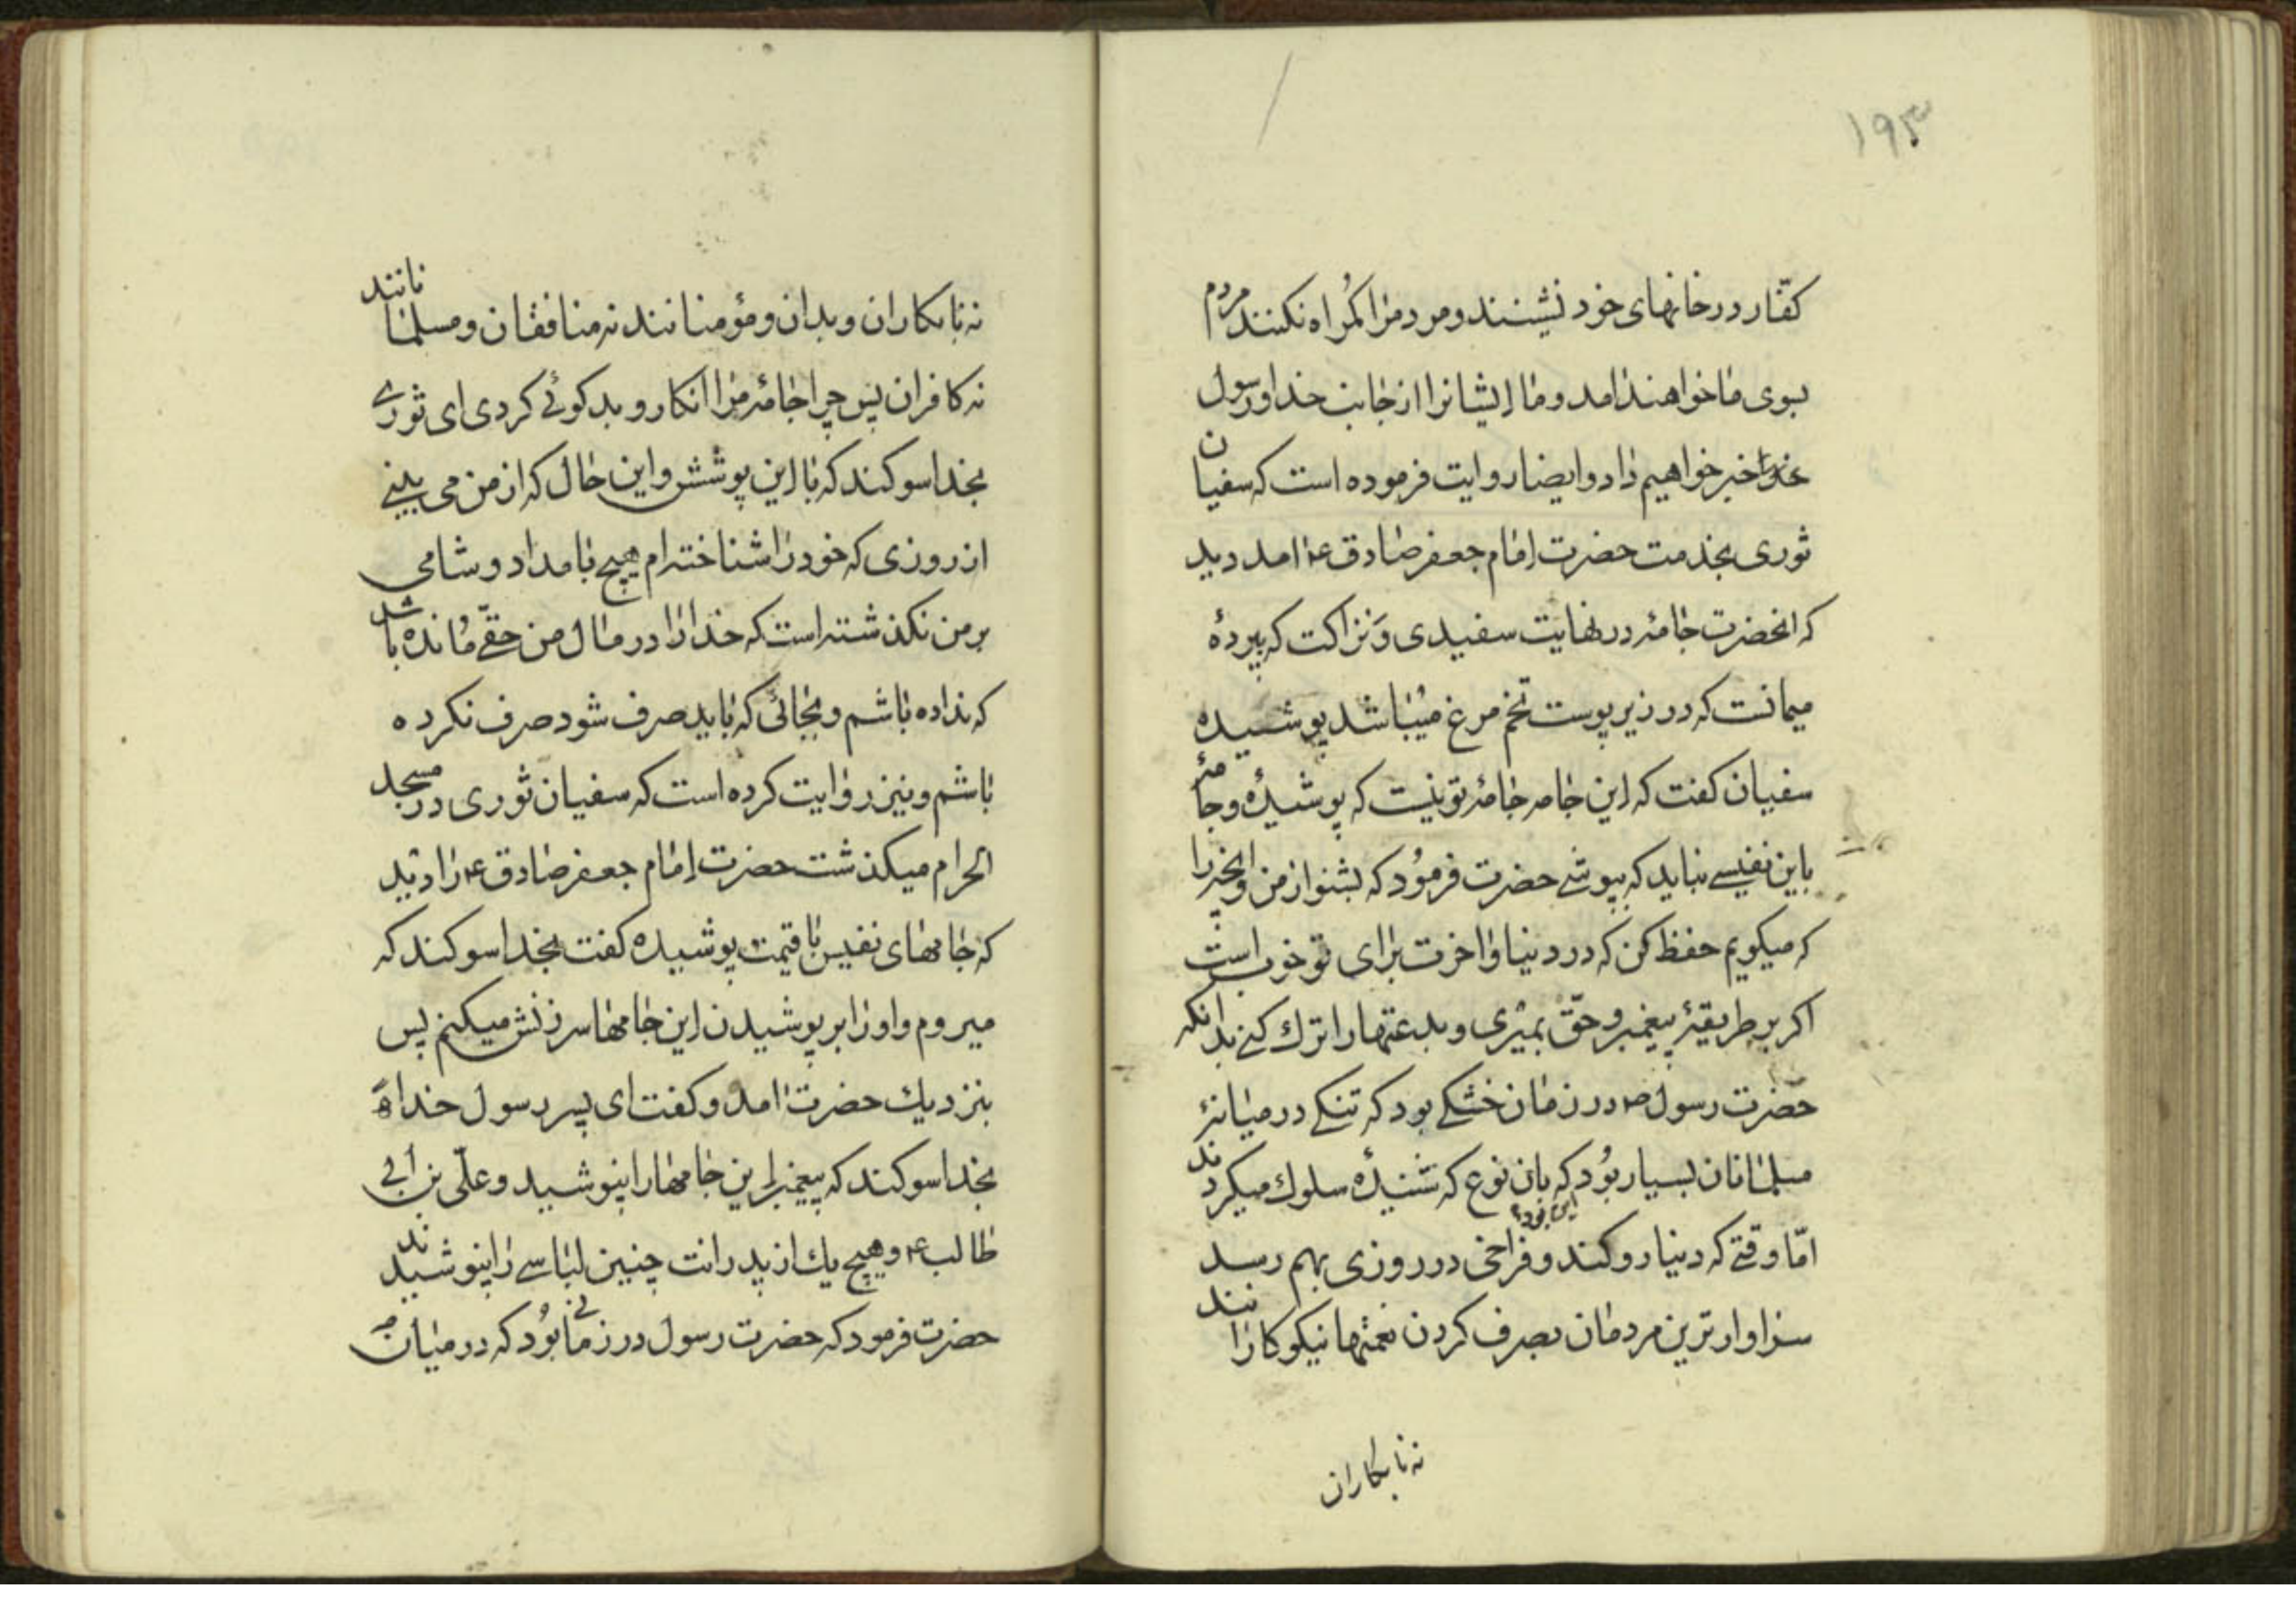 ۱۹۳
کفّار در خانهای خود نشینند و مردمرا کمراه نکنند مردم
بسوی ما خواهند امد و ما ایشانرا از جانب خدا و رسول
خبر خواهیم داد و ایضا روایت فرموده است که سفیان
ثوری بخدمت حضرت امام جعفر صادق ع امد دید
که انحضرت جامهٔ در نهایت سفیدی و نزاکت که بپردهٔ
میمانست که در زیر پوست تخم مرغ میباشد پوشیده
سفیان کفت که این جامه جامهٔ تو نیست که پوشیدهٔ و جامهٔ
باین نفیسے نباید که بپوشے حضرت فرمود که بشنو از من و انچه را
که میکویم حفظ کن که در دنیا و اخرت برای تو خوب است
اکر بر طریقهٔ پیغمبر و حقّ بمیری و بدعتها را ترك کنے بدانکه
حضرت رسول ص در زمان خشکے بود که تنکے در میانهٔ
مسلمانان بسیار بود که بان نوع که شنیدهٔ سلوك میکردند
امّا وقتے که دنیا رو کند و فراخی در روزی بهم رسد
سزاوارترین مردمان بصرف کردن نعمتها نیکوکارانند
نه نابکاران
نه نابکاران و بدان و مؤمنانند نه منافقان و مسلمانانند
نه کافران پس چرا جامهٔ مرا انکار و بد کوئے کردی ای ثورے
بخدا سوکند که با این پوشش و این حال که از من می بینے
از روزی که خود را شناخته ام هیچ بامداد و شامی
بر من نکذشته است که خدا را در مال من حقّے مانده باشد
که نداده باشم و بجائی که باید صرف شود صرف نکرده
باشم و نیز روایت کرده است که سفیان ثوری در مسجد
الحرام میکذشت حضرت امام جعفر صادق ع را دید
که جامهای نفیس با قیمت پوشیده کفت بخدا سوکند که
میروم و او را بر پوشیدن این جامها سرزنش میکنم پس
بنزدیك حضرت امد و کفت ای پسر رسول خدا
بخدا سوکند که پیغمبر این جامها را نپوشید و علّی بن ابی
طالب ع و هیچ یك از پدرانت چنین لباسے را نپوشیدند
حضرت فرمود که حضرت رسول در زمانی بود که در میان